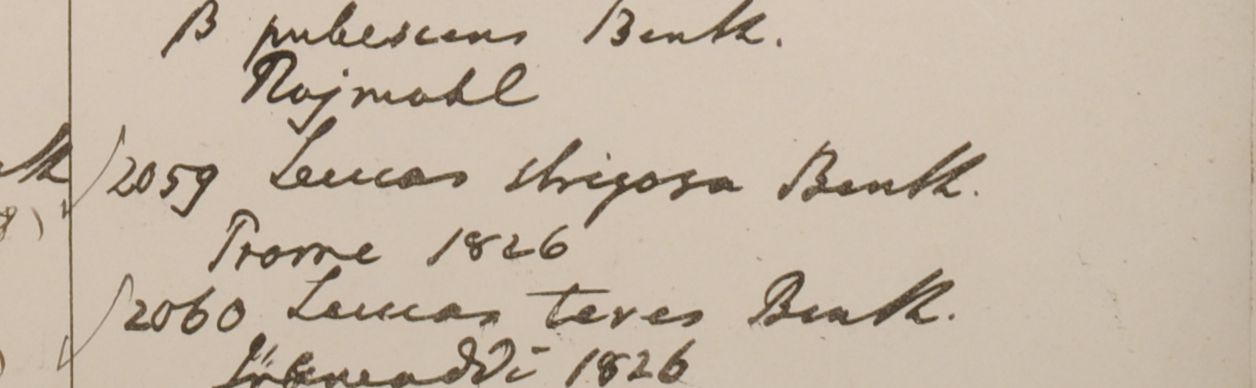 β pubescens Benth.
Rajmahl
2059 Leucas strigosa Benth.
Prome 1826
2060 Leucas teres Benth.
1826